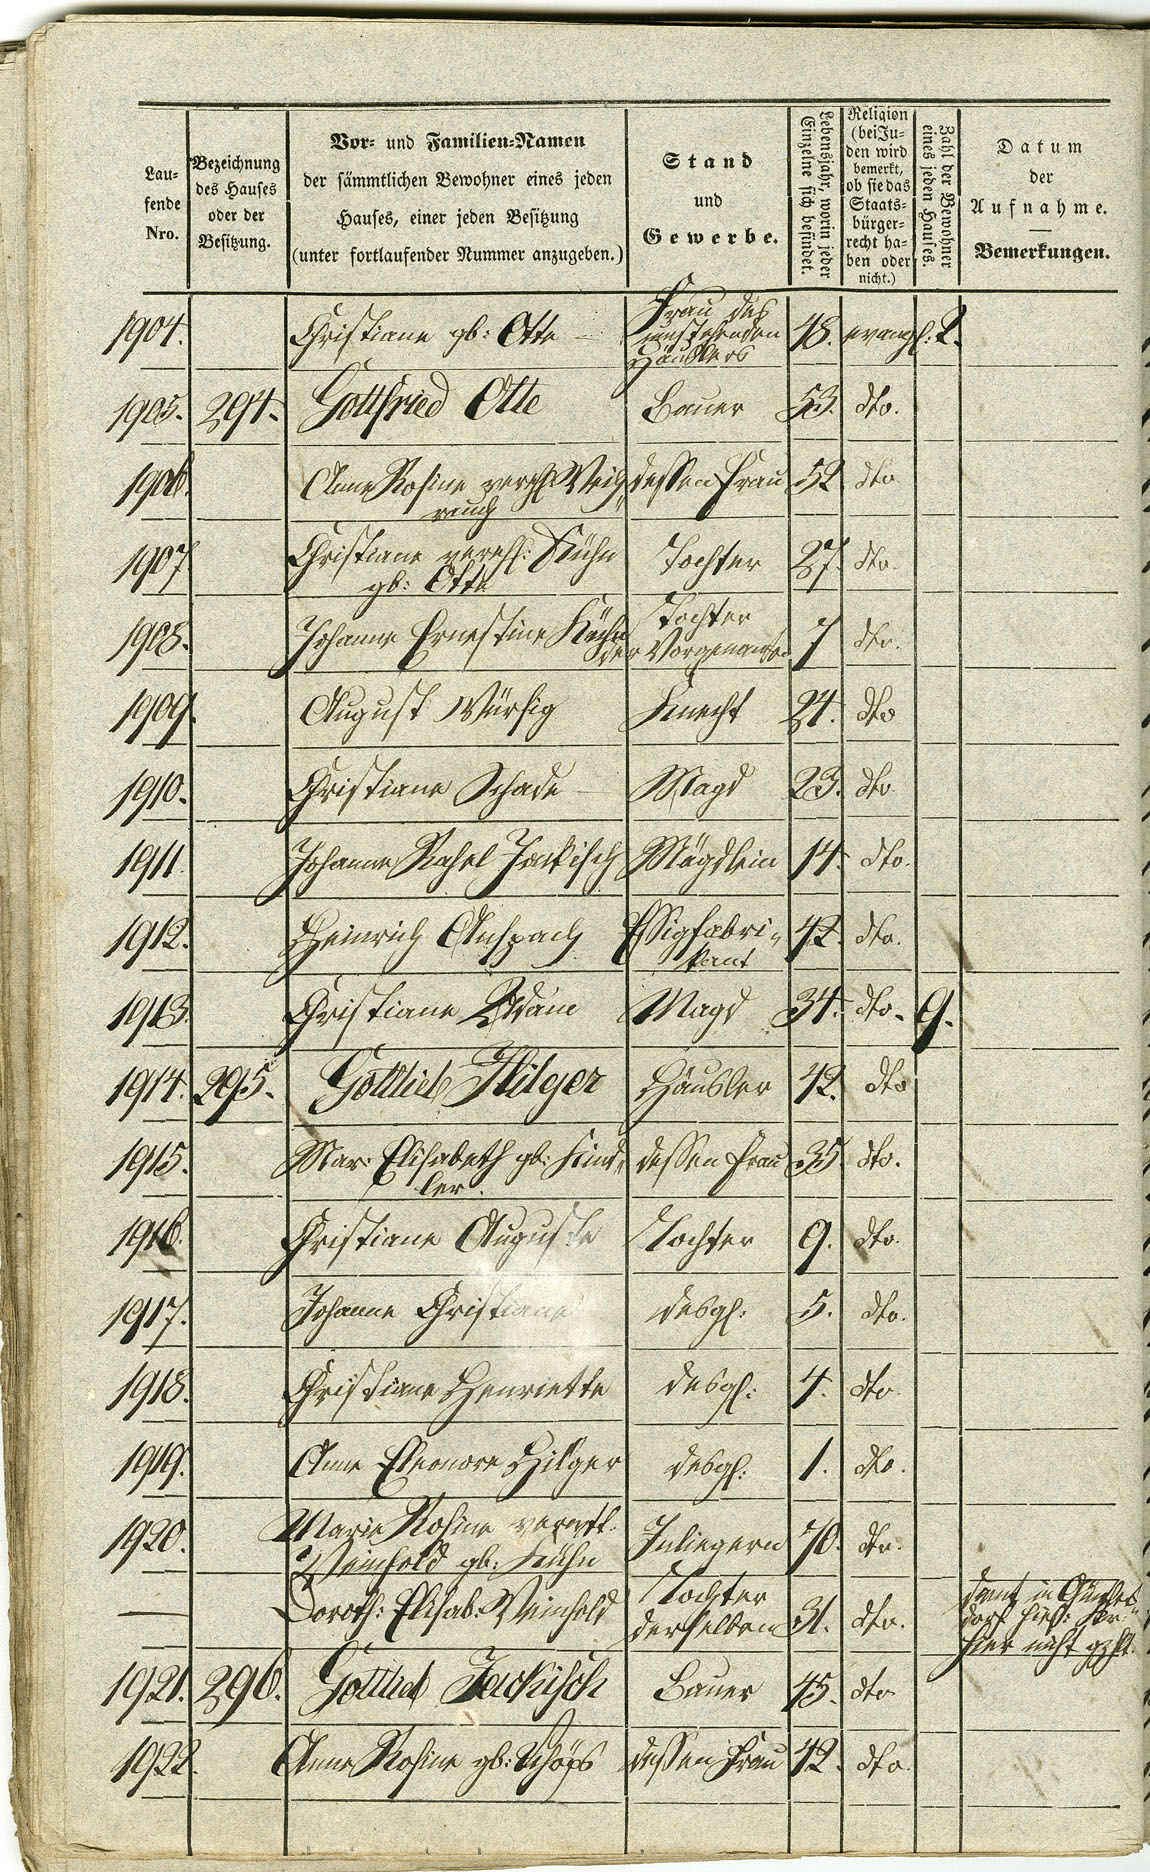 Lau-
fende
Nro.
Bezeichnung
des Hauses
oder der
Besitzung.
Vor- und Familien-Namen
der sämmtlichen Bewohner eines jeden
Hauses, einer jeden Besitzung
(unter fortlaufender Nummer anzugeben.)
Stand
und
Gewerbe.
Lebensjahr, worin jeder
Einzelne sich befindet.
Religion
(bei Ju-
den wird
bemerkt,
ob sie das
Staats-
bürger-
recht ha-
ben oder
nicht.)
Zahl der Bewohner
eines jeden Hauses.
Datum
der
Aufnahme.
Bemerkungen.
1904. Christiane gb: Otte Frau des 48. evangl: 2.
Häuslers
1905. 294. Gottfried Otte Bauer 53. dto.
1906. Anne Rosine Weih dessen Frau 52 dto
rauch
1907 Christiane verehl: Kühn Tochter 27. dto.
gb: Otte
1908. Johanne Ernestine Kühn Tochter 7 dto.
der Vorgenannten
1909. August Würsig Knecht 24. dto
1910. Christiane Schade Magd 23. dto
1911 Johanne Rahel Jackisch Mägdlein 14. dto.
1912. Heinrich Anspach Essigfabri- 42. dto.
kant
1913. Christiane Adam Magd 34. dto. 9.
1914. 295. Gottlieb Hilger Häusler 42. dto
1915. Mar: Elisabeth gb: Kind- dessen Frau 35. dto.
ler.
1916. Christiane Auguste Tochter 9. dto.
1917. Johanne Christiane desgl: 5. dto.
1918. Christiane Henriette desgl: 4. dto
1919. Anne Eleonore Hilger desgl: 1. dto.
1920. Marie Rosine verwtt. Inliegerin 70. dto.
Weinhold gb: Kühn
— Doroth: Elisab: Weinhold Tochter 31. dto.
derselben
dient in
hier nicht gzhlt.
1921. 296. Gottlieb Jackisch Bauer 45. dto
1922. Anne Rosine gb: Schöps dessen Frau 42. dto.